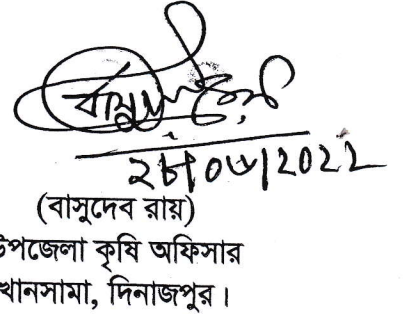 বাসুদেব রায়
২৮/০৬/2022
(বাসুদেব রায়)
উপজেলা কৃষি অফিসার
খানসামা, দিনাজপুর।